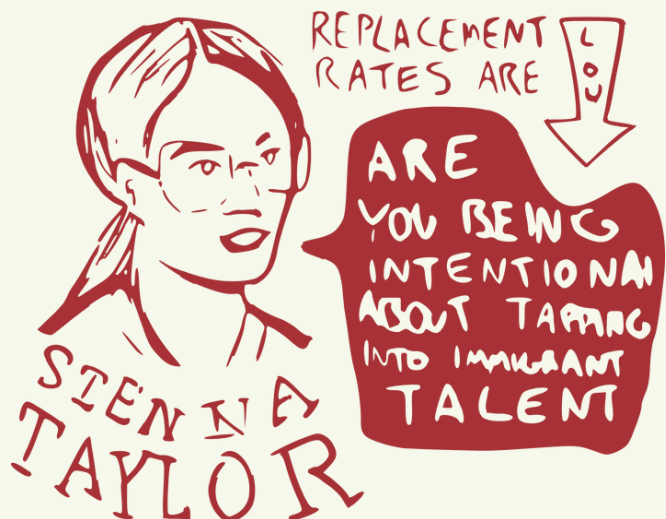 REPLACEMENT
RATES ARE
LOW
ARE
YOU BEING
INTENTIONAL
ABOUT TAPPING
INTO IMMIGRANT
TALENT
STENNA
TAYLOR